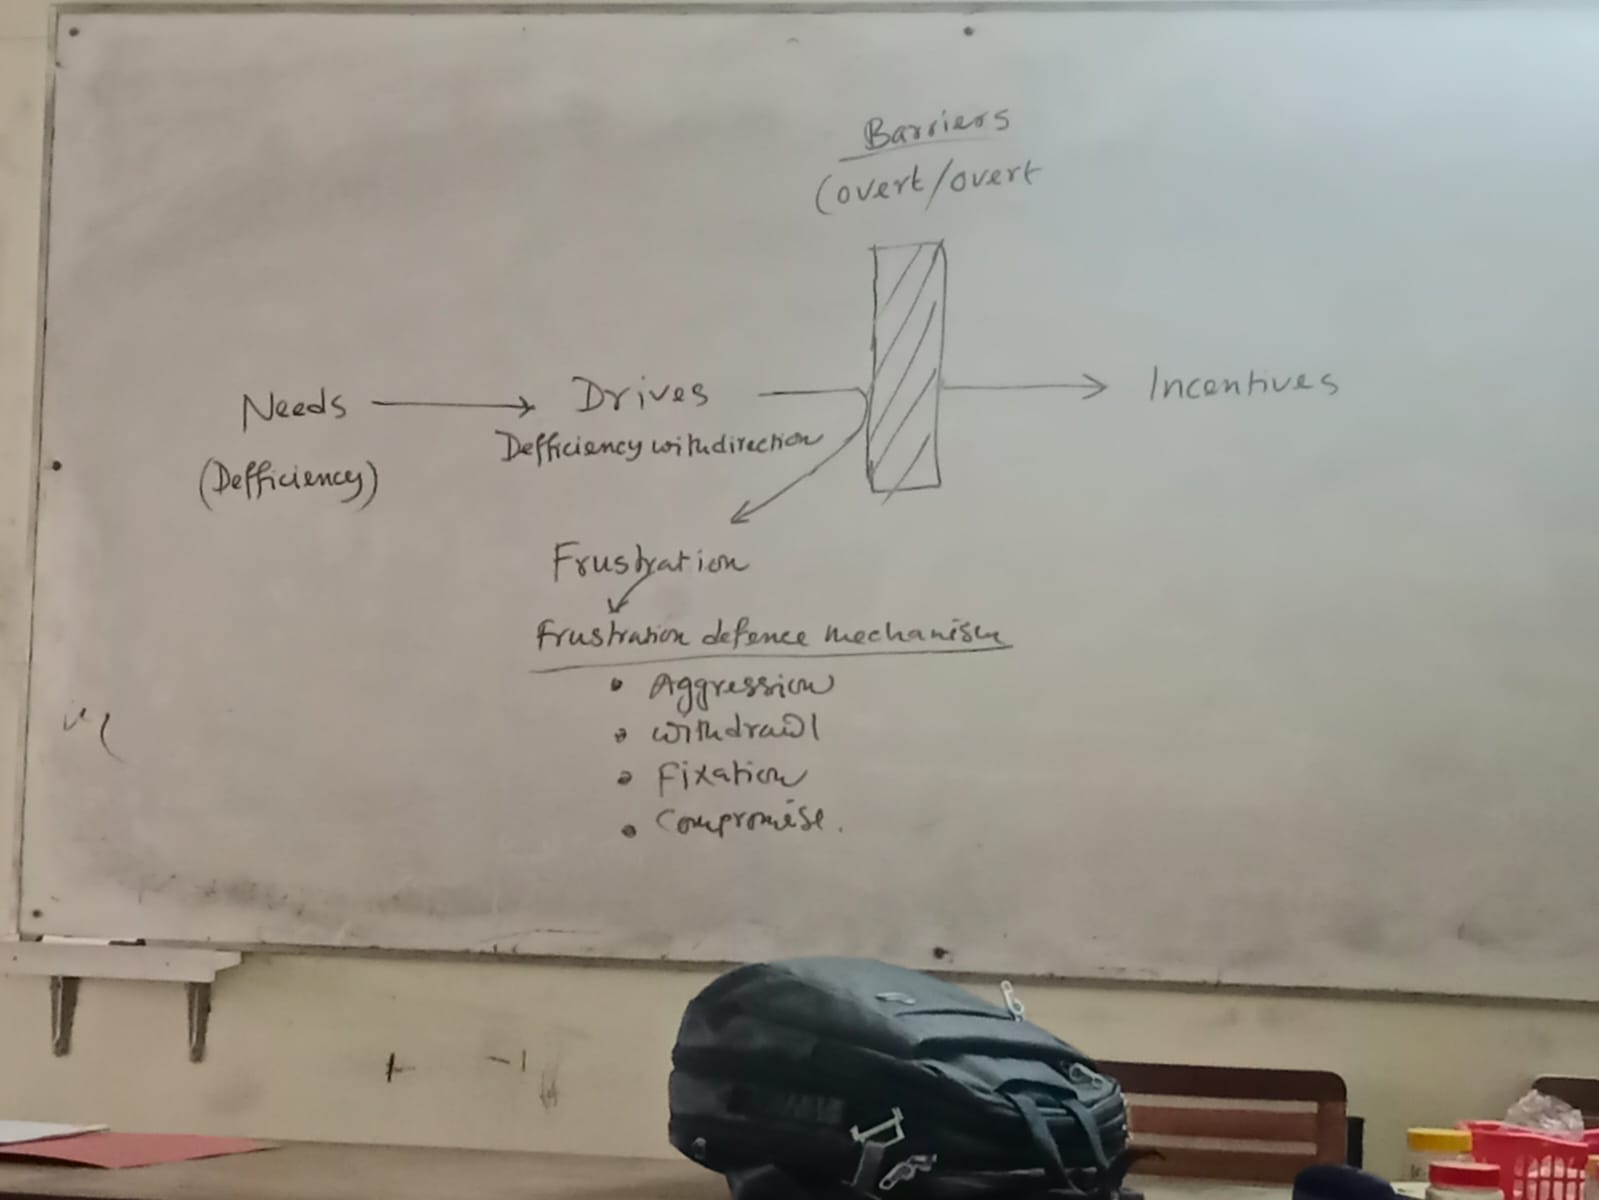 Barriers
Covert/overt
Needs
Drives
Incentives
(Defficiency)
Defficiency with direction
Frustration
Frustration defence mechanism
• Aggression
• withdrawl
• Fixation
• Compromise.